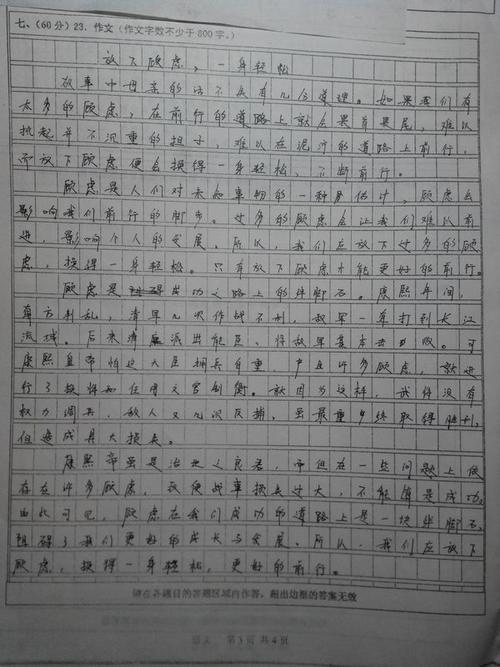 七、(60分) 23. 作文 (作文字数不少于800字。)
放下顾虑，一身轻松
故事中母亲的话不无有几分道理。如果我们有
太多的顾虑，在前行的道路上就会畏首畏尾，难以
执起并不沉重的担子，难以在泥泞的道路上前行，
而放下顾虑便会换得一身轻松，不断前行。
顾虑是人们对未知事物的一种 估计，顾虑会
影响我们前行的脚步。过多的顾虑会让我们难以前
进，影响个人的发展。所以，我们应放下过多的顾
虑，换得一身轻松。只有放下顾虑才能更好的前行。
顾虑是成功之路上的绊脚石。康熙年间，
南方判乱，清军几次作战不利，敌军一度打到长江
流域。后来清廷派出能臣，将敌军 击败。可
康熙皇帝怕这大臣拥兵自重，产生许多顾虑，就进
行了换将和任用文官制衡。就因为这样，武将没有
权力调兵，敌人又几次反捕，虽最重终取得胜利，
但造成具大损失。
康熙帝虽是治世之良君，而但在一些问题上仍
存在许多顾虑，致使战事损失过大，不能算是成功。
由此可见，顾虑在我们成功的道路上是一块绊脚石，
阻碍了我们更好的成长与发展。所以，我们应放下
顾虑，换得一身轻松，更好的前行。
请在各题目的答题区域内作答，超出边框的答案无效
语文 第3页 共4页